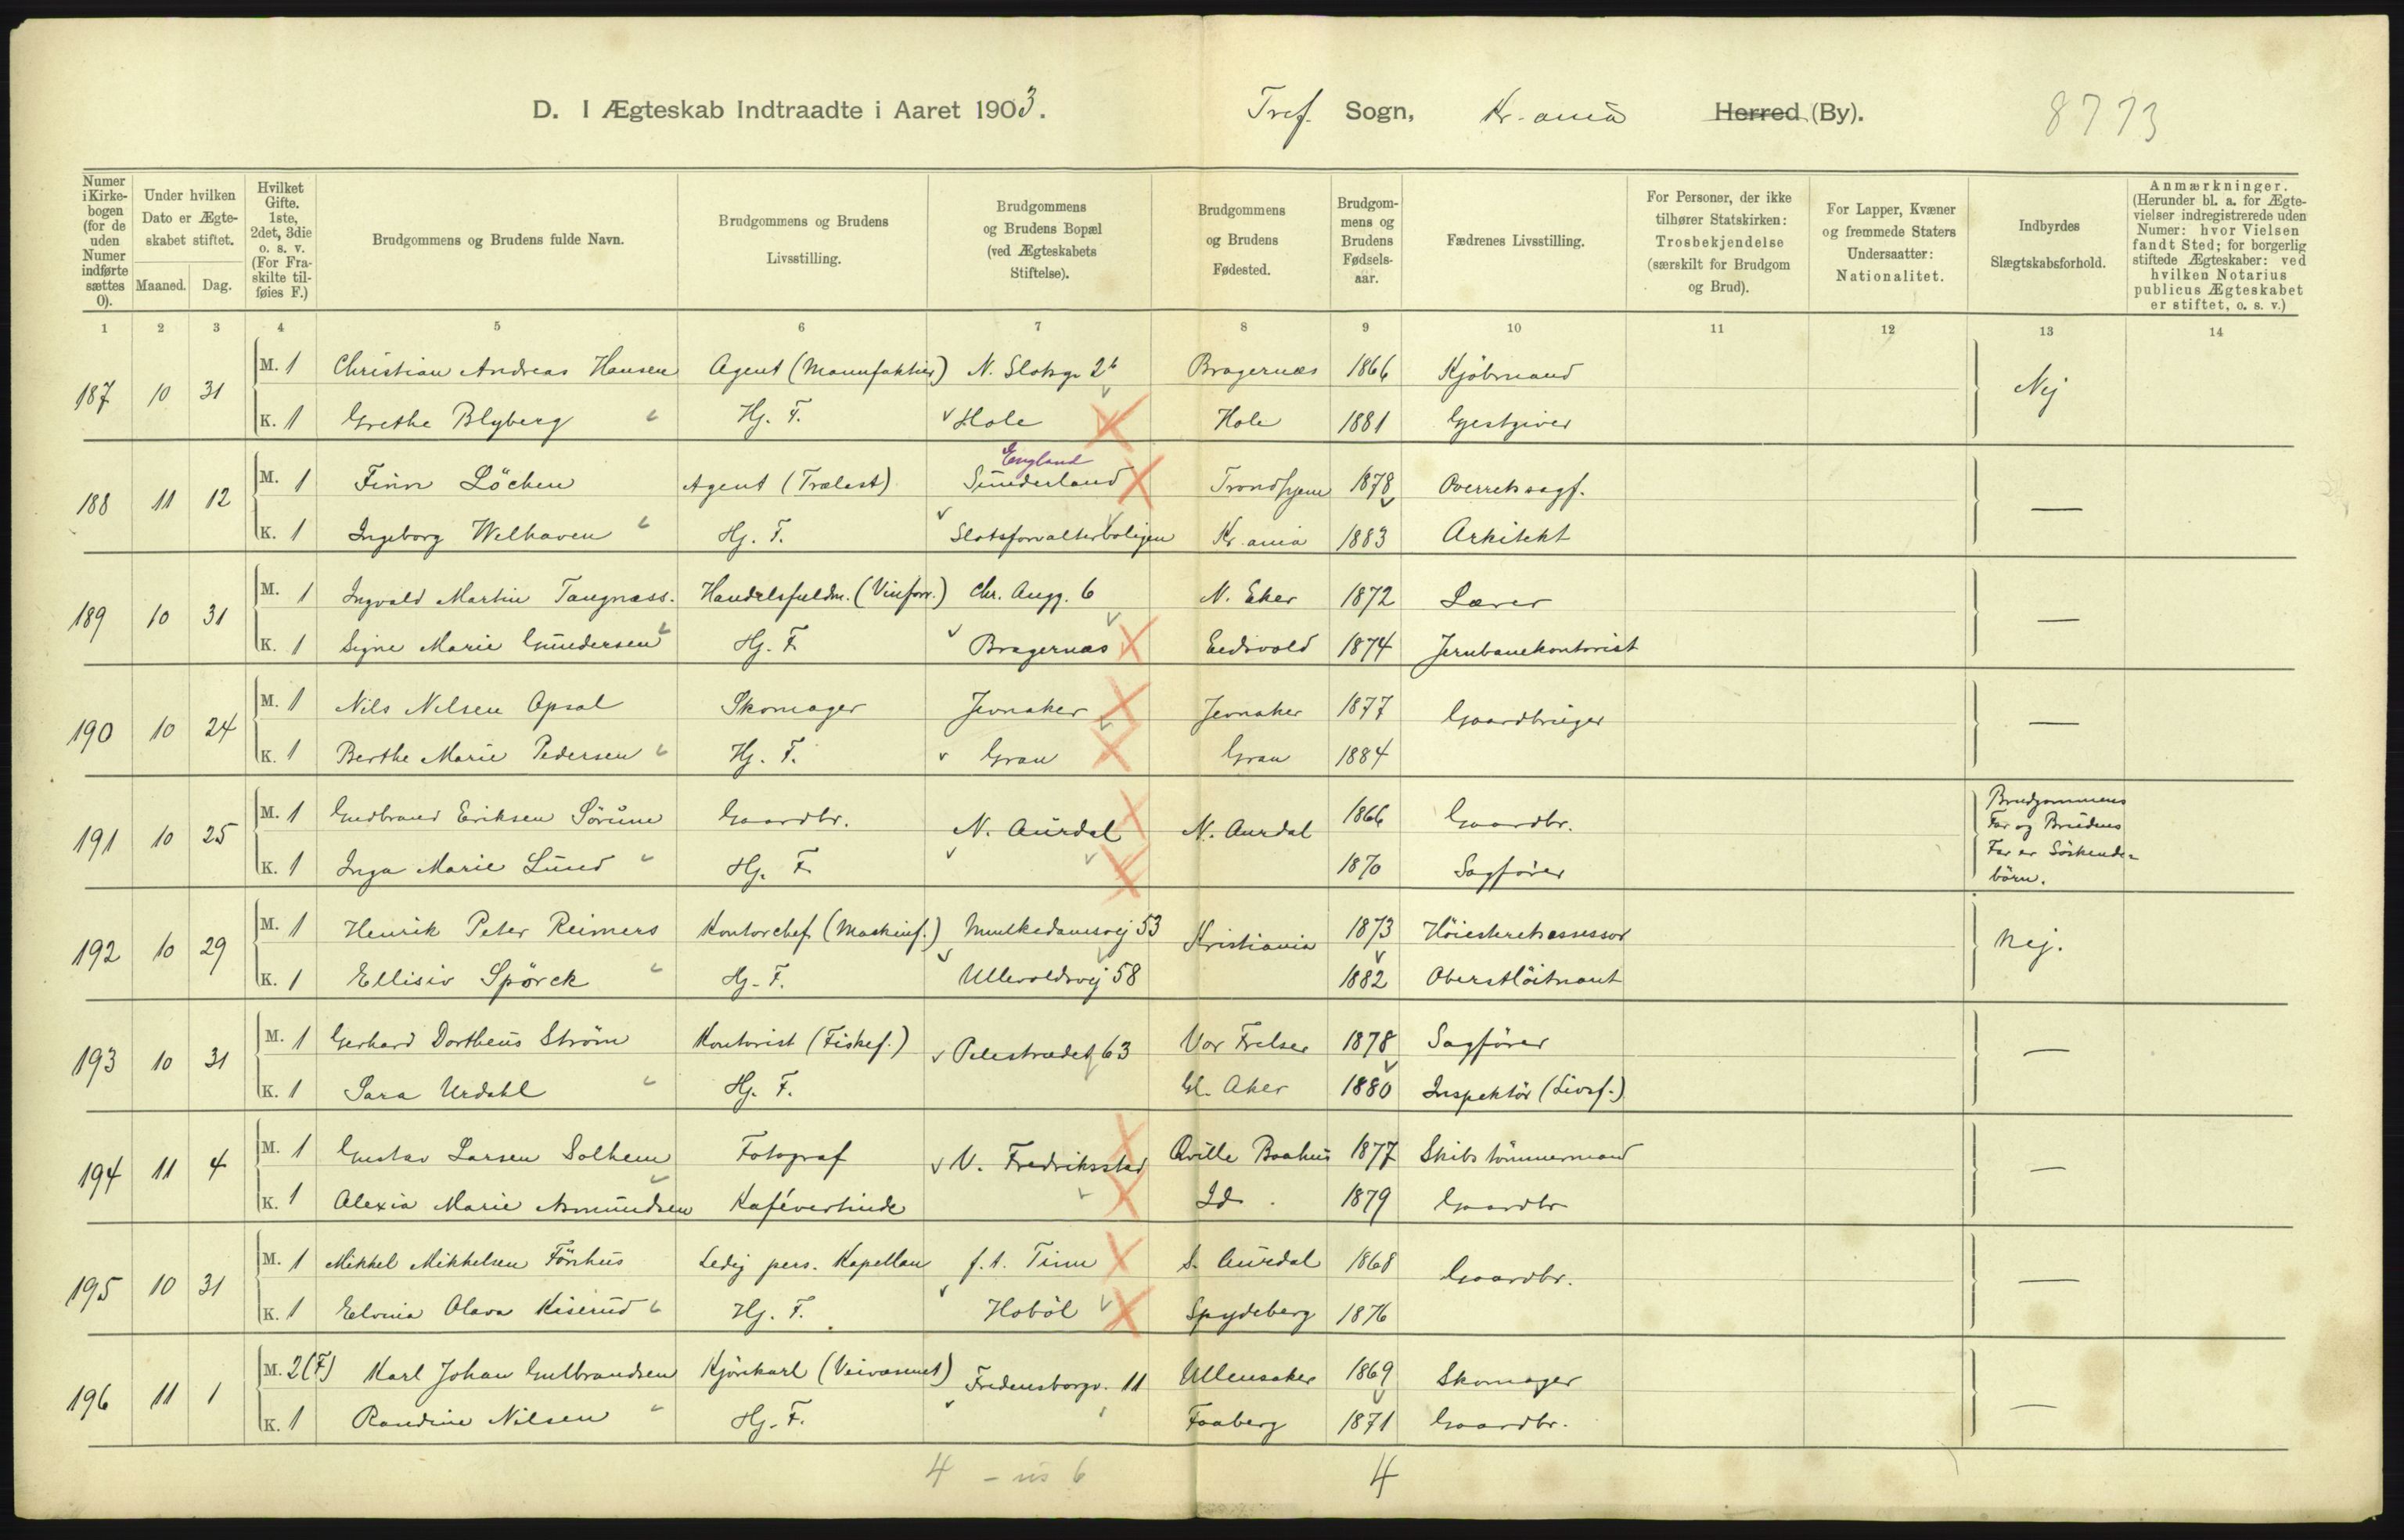 D. I Ægteskab Indtraadte i Aaret 1903. Tref. Sogn, Kr.ania Herred (By). 8773
Numer i Kirke-bogen (for de uden Numer indførte sættes 0).
Under hvilken Dato er Ægte-skabet stiftet.
Maaned. Dag.
Hvilket Gifte. 1ste, 2det, 3die o. s. v. (For Fra-skilte til-føies F.)
Brudgommens og Brudens fulde Navn.
Brudgommens og Brudens Livsstilling.
Brudgommens og Brudens Bopæl (ved Ægteskabets Stiftelse).
Brudgommens og Brudens Fødested.
Brudgom-mens og Brudens Fødsels-aar.
Fædrenes Livsstilling.
For Personer, der ikke tilhører Statskirken: Trosbekjendelse (særskilt for Brudgom og Brud).
For Lapper, Kvæner og fremmede Staters Undersaatter: Nationalitet.
Indbyrdes Slægtskabsforhold.
Anmærkninger. (Herunder bl. a. for Ægte-vielser indregistrerede uden Numer: hvor Vielsen fandt Sted; for borgerlig stiftede Ægteskaber: ved hvilken Notarius publicus Ægteskabet er stiftet, o. s. v.)
1 2 3 4 5 6 7 8 9 10 11 12 13 14
187 10 31 M. 1 Christian Andreas Hansen Agent (Manufaktur) N. Slotsg. 2b Bragernæs 1866 Kjöbmand Nej
K. 1 Grethe Blyberg Hj. F. Hole Hole 1881 Gjestgiver
England
188 11 12 M. 1 Finn Löchen Agent (Trælast) Sunderland Trondhjem 1878 Overretssagf. —
K. 1 Ingeborg Welhaven Hj. F. Slotsforvalterboligen Kr.ania 1883 Arkitekt
189 10 31 M. 1 Ingvald Martin Tangnæss. Handelsfuldm. (Vinforr.) Chr. Augg. 6 N. Eker 1872 Lærer —
K. 1 Signe Marie Gundersen Hj. F. Bragernæs Eidsvold 1874 Jernbanekontorist
190 10 24 M. 1 Nils Nilsen Opsal Skomager Jevnaker Jevnaker 1877 Gaardbruger —
K. 1 Berthe Marie Pedersen Hj. F. Gran Gran 1884
191 10 25 M. 1 Gudbrand Eriksen Sörum Gaardbr. N. Aurdal N. Aurdal 1866 Gaardbr. Brudgommens Far og Brudens Far er Söskende-börn.
K. 1 Inga Marie Lund Hj. F. 1870 Sagförer
192 10 29 M. 1 Henrik Peter Reimers Kontorchef (Maskinf.) Munkedamsvej 53 Kristiania 1873 Höiesteretsassessor Nej.
K. 1 Ellisiv Spörck Hj. F. Ullevoldsvej 58 1882 Oberstlöitnant
193 10 31 M. 1 Gerhard Dortheus Ström Kontorist (Fiskef.) Pilestrædet 63 Vor Frelser 1878 Sagförer —
K. 1 Sara Urdahl Hj. F. Gl. Aker 1880 Inspektör (Livsf.)
194 11 4 M. 1 Gustav Larsen Solhem Fotograf V. Fredriksstad Qville Baahus 1877 Skibstömmermand —
K. 1 Alexia Marie Asmundsen Kafévertinde Id. 1879 Gaardbr
195 10 31 M. 1 Mikkel Mikkelsen Fönhus Ledig pers. Kapellan f. t. Tinn S. Aurdal 1868 Gaardbr. —
K. 1 Elvina Olava Kiserud Hj. F. Haaböl Spydeberg 1876
196 11 1 M. 2 (F) Karl Johan Gulbrandsen Kjörekarl (Veivæsenet) Fredensborgv. 11 Ullensaker 1869 Skomager —
K. 1 Randine Nilsen Hj. F. Faaberg 1871 Gaardbr.
4 4